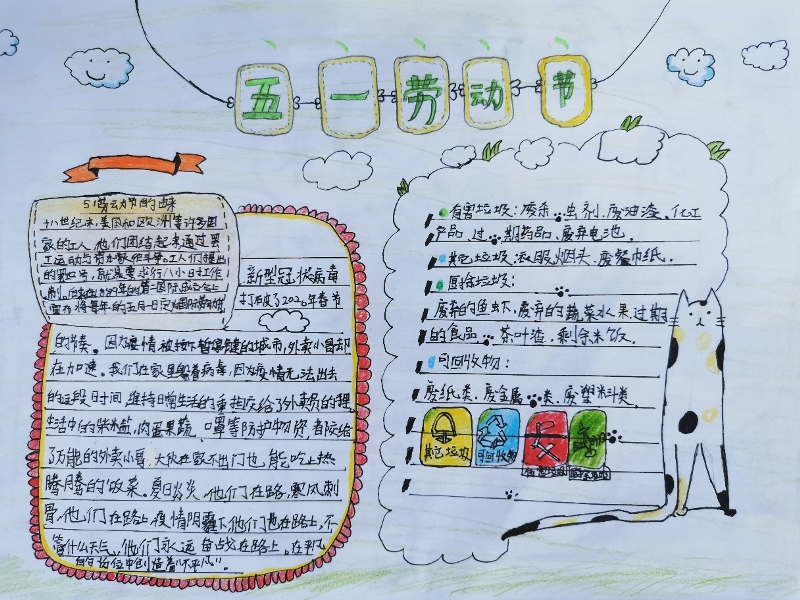 五一劳动节
51劳动节的由来
十八世纪末,美国和欧洲等许多国
家的工人,他们团结起来通过罢
工运动与资本家作斗争。工人们提出
的罢工口号,就是要求行八小日工作
制。
新型冠状病毒
打乱了2020年春节
的节奏。因为疫情被按下暂停键的城市,外卖小哥却
在加速。我们在家里躲着病毒,因为疫情无法出去
的这段日时间,维持日常生活的重担交给了外卖员的裡,
生活中的柴米盐,肉蛋果蔬、口罩等防护物资,都交给
了万能的外卖小哥,大伙在家不出门也能吃上热
腾腾的饭菜。夏日炎炎,他们在路,寒风刺
骨,他们在路上,疫情阴霾下他们也在路上,不
管什么天气,他们永远奋战在路上,在平凡
的岗位中创造着“不平凡”。
有害垃圾:废杀虫剂、废油漆、化工
产品、过期药品、废弃电池。
其它垃圾:衣服、烟头、废餐巾纸。
厨余垃圾:
废弃的鱼虾,废弃的蔬菜水果过期
的食品、茶叶渣,剩余米饭。
可回收物:
废纸类、废金属类、废塑料类
其它垃圾 可回收物